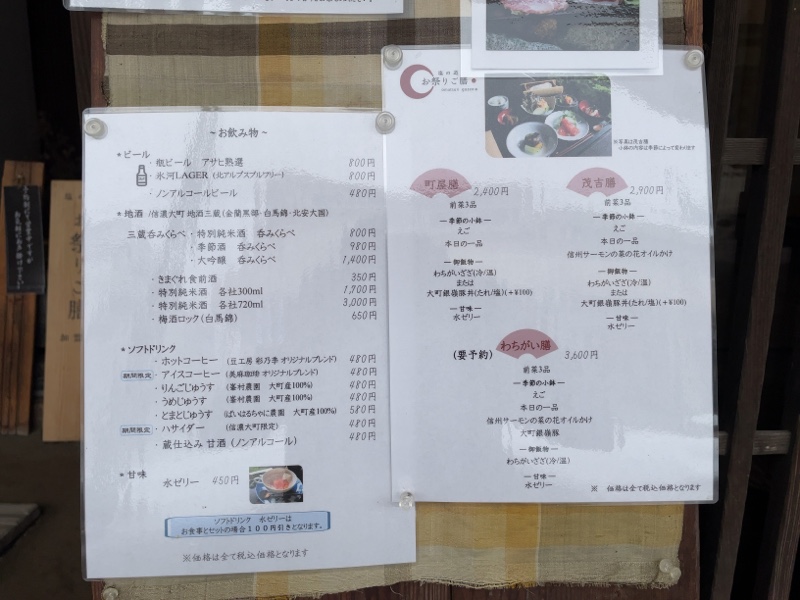 ～お飲み物～
*ビール
・瓶ビール アサヒ熟選 800円
・氷河LAGER（北アルプスブルワリー） 800円
・ノンアルコールビール 480円
*地酒 /信濃大町 地酒三蔵（金蘭黒部・白馬錦・北安大國）
三蔵呑みくらべ・特別純米酒 呑みくらべ 800円
・季節酒 呑みくらべ 980円
・大吟醸 呑みくらべ 1,400円
・きまぐれ食前酒 350円
・特別純米酒 各社300ml 1,700円
・特別純米酒 各社720ml 3,000円
・梅酒ロック（白馬錦） 650円
*ソフトドリンク
・ホットコーヒー （豆工房 彩乃季 オリジナルブレンド） 480円
期間限定 ・アイスコーヒー （美麻珈琲 オリジナルブレンド） 480円
・りんごじゅうす （峯村農園 大町産100%） 480円
・うめじゅうす （峯村農園 大町産100%） 480円
・とまとじゅうす （ばいはるちゃに農園 大町産100%） 580円
期間限定 ・ハサイダー （信濃大町限定） 480円
・蔵仕込み 甘酒（ノンアルコール） 480円
*甘味
水ゼリー 450円
ソフトドリンク 水ゼリーは
お食事とセットの場合１００円引きとなります。
※価格は全て税込価格となります
お祭りご膳
※写真は茂吉膳
小鉢の内容は季節によって変わります
町屋膳 2,400円
前菜3品
―季節の小鉢―
えご
本日の一品
―御飯物―
わちがいざざ（冷/温）
または
大町銀嶺豚丼（たれ/塩）（＋¥100）
―甘味―
水ゼリー
茂吉膳 2,900円
前菜3品
―季節の小鉢―
えご
本日の一品
信州サーモンの菜の花オイルかけ
―御飯物―
わちがいざざ（冷/温）
または
大町銀嶺豚丼（たれ/塩）（＋¥100）
―甘味―
水ゼリー
（要予約） わちがい膳 3,600円
前菜3品
―季節の小鉢―
えご
本日の一品
信州サーモンの菜の花オイルかけ
大町銀嶺豚
―御飯物―
わちがいざざ（冷/温）
―甘味―
水ゼリー
※ 価格は全て税込価格となります